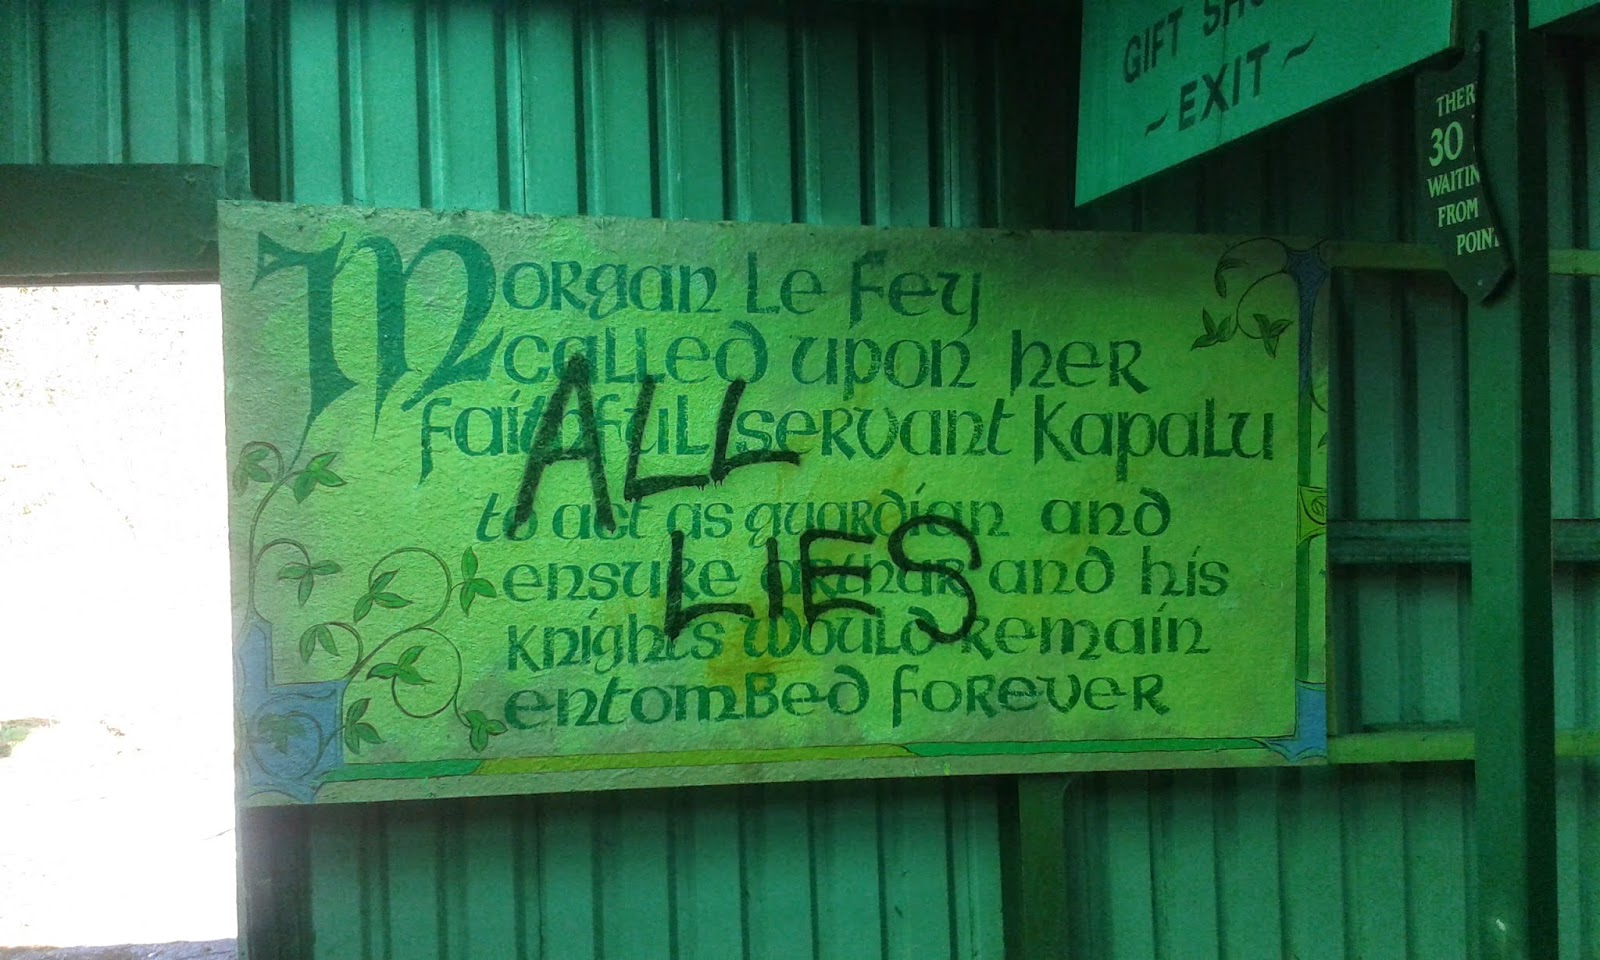 GIFT
~ EXIT ~
30
WAITIN
FROM
POINT
Morgan le Fey
called upon her
faithful servant Kapalu
to act as guardian and
ensure Arthur and his
Knights would remain
entombed forever
ALL
LIES